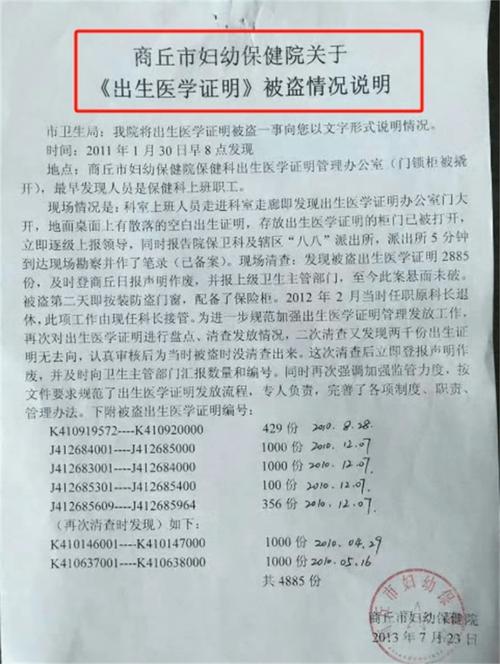 商丘市妇幼保健院关于
《出生医学证明》被盗情况说明
市卫生局：我院将出生医学证明被盗一事向您以文字形式说明情况。
时间：2011 年 1 月 30 日早 8 点发现
地点：商丘市妇幼保健院保健科出生医学证明管理办公室（门锁柜被撬
开），最早发现人员是保健科上班职工。
现场情况是：科室上班人员走进科室走廊即发现出生医学证明办公室门大
开，地面桌面上有散落的空白出生证明，存放出生医学证明的柜门已被打开，
立即逐级上报领导，同时报告院保卫科及辖区“八八”派出所，派出所 5 分钟
到达现场勘察并作了笔录（已备案）。现场清查：发现被盗出生医学证明 2885
份，及时登商丘日报声明作废，并报上级卫生主管部门，至今此案悬而未破。
被盗第二天即按装防盗门窗，配备了保险柜。2012 年 2 月当时任职原科长退
休，此项工作由现任科长接管。为进一步规范加强出生医学证明管理发放工作，
再次对出生医学证明进行盘点、清查发放情况，二次清查又发现两千份出生证
明无去向，认真审核后为当时被盗时没清查出来。这次清查后立即登报声明作
废，并及时向卫生主管部门汇报数量和编号。同时再次强调加强监管力度，按
文件要求规范了出生医学证明发放流程，专人负责，完善了各项制度、职责、
管理办法。下附被盗出生医学证明编号：
K410919572----K410920000 429 份 2010.8.28.
J412684001----J412685000 1000 份 2010.12.07
J412683001----J412684000 1000 份 2010.12.07.
J412685301----J412685400 100 份 2010.12.07
J412685609----J412685964 356 份 2010.12.07.
（再次清查时发现）如下：
K410146001----K410147000 1000 份 2010.04.29
K410637001----K410638000 1000 份 2010.05.16
共 4885 份
商丘市妇幼保健院
2013 年 7 月 23 日